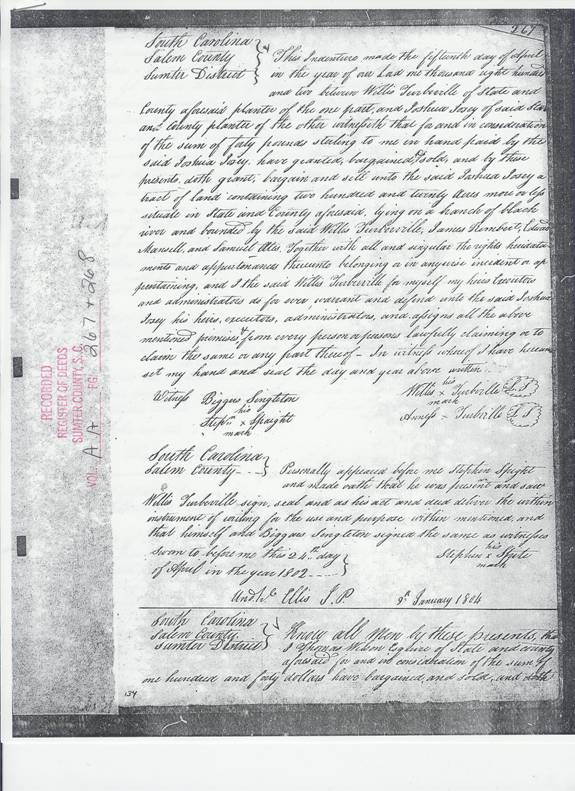 267
South Carolina
Salem County
Sumter District
This Indenture made the fifteenth day of April
in the year of our Lord one thousand eight hundred
and two between Willis Turberville of State and
County aforesaid planter of the one part, and Joshua Josey of said State
and County planter of the other witnesseth that for and in consideration
of the sum of forty pounds sterling to me in hand paid by the
said Joshua Josey, have granted, bargained, & sold, and by these
presents, doth grant, bargain and sell unto the said Joshua Josey a
tract of land containing two hundred and twenty Acres more or less
situate in State and County aforesaid, lying on a branch of black
river and bounded by the said Willis Turberville, James Rembert, Edward
Mansell, and Samuel Together with all and singular the rights heredita-
ments and appurtenances thereunto belonging or in anywise incident or ap
pertaining, and I the said Willis Turberville for myself my heirs Executors
and administrators do for ever warrant and defend unto the said Joshua
Josey his heirs, executors, administrators, and assigns all the above
mentioned premises & from every person or persons lawfully claiming or to
claim the same or any part thereof - In witness whereof I have hereun
set my hand and seal the day and year above written
Witness Biggus Singleton
Stepn his x Spraight
mark
Willis his x Turbville L S
mark
Turbville L S
South Carolina
Salem County
Personally appeared before me Stephen Spight
and made oath that he was present and saw
Willis Turbeville sign, seal and as his act and deed deliver the within
instrument of writing for the use and purpose within mentioned, and
that himself and Biggus Singleton signed the same as witnesses
Sworn to before me this 24th day
of April in the year 1802
Stephen his x Spite
mark
Ellis J. P.
9th January 1804
South Carolina
Salem County
Sumter District
Know all Men by these presents, tha
I Thomas Wilson Esquire of State and county
aforesaid for and in consideration of the sum of
one hundred and forty dollars have bargained, and sold, and doth
134
RECORDED
REGISTER OF DEEDS
SUMTER COUNTY, S.C.
VOL. AA PG. 267 & 268